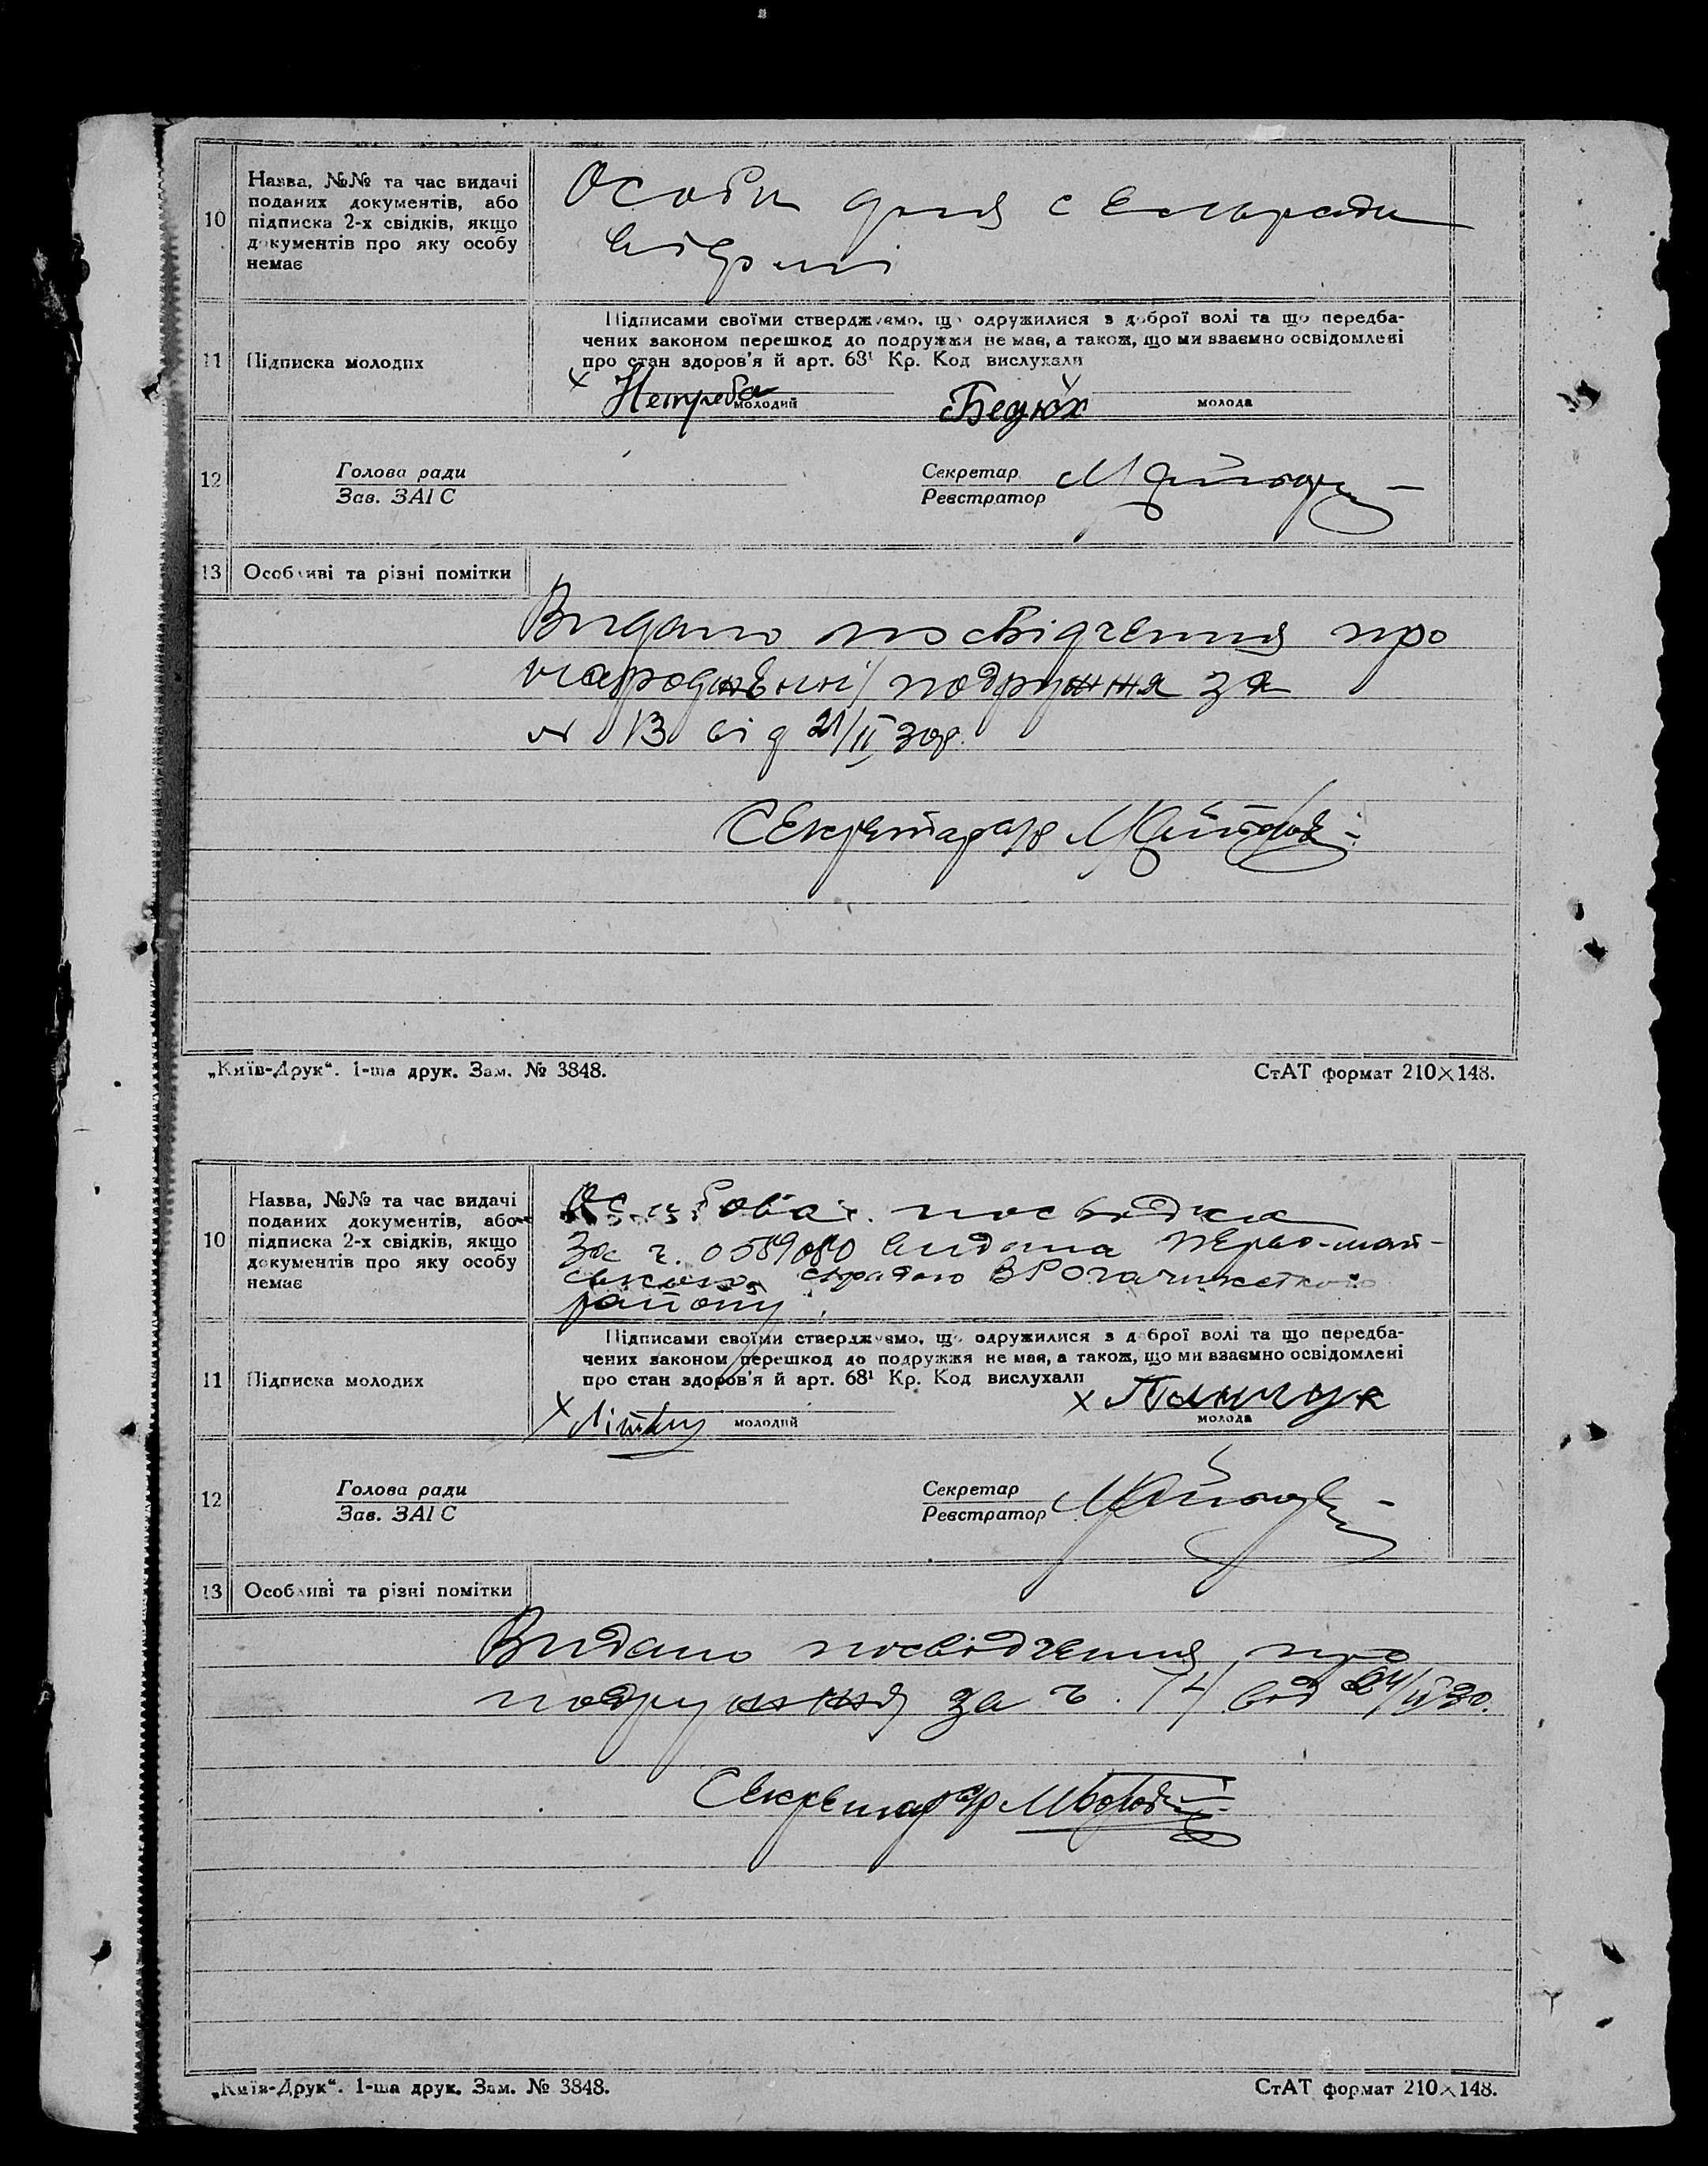 10 Назва, №№ та час видачі
поданих документів, або
підписка 2-х свідків, якщо
документів про яку особу
немає
Особи для сельради
відомі
11 Підписка молодих
Підписами своїми стверджуємо, що одружилися з доброї волі та що передба-
чених законом перешкод до подружжя не має, а також, що ми взаємно освідомлені
про стан здоров'я й арт. 68¹ Кр. Код вислухали
х Непреба молодий
х Бедюх молода
12 Голова ради
Зав. ЗАГС
Секретар
Реєстратор
13 Особливі та різні помітки
Видано посвідчення про
подружжя за
№ 13 від 21/II 30р.
Секретар
„Київ-Друк“. 1-ша друк. Зам. № 3848.
СтАТ формат 210×148.
10 Назва, №№ та час видачі
поданих документів, або
підписка 2-х свідків, якщо
документів про яку особу
немає
Особова посвідка
за ч. 0589080 видана Перво-май-
радою ВРОгачикського
району
11 Підписка молодих
Підписами своїми стверджуємо, що одружилися з доброї волі та що передба-
чених законом перешкод до подружжя не має, а також, що ми взаємно освідомлені
про стан здоров'я й арт. 68¹ Кр. Код вислухали
х молодий
х молода
12 Голова ради
Зав. ЗАГС
Секретар
Реєстратор
13 Особливі та різні помітки
Видано посвідчення про
подружжя за ч. 14 від 24/II 30.
Секретар
„Київ-Друк“. 1-ша друк. Зам. № 3848.
СтАТ формат 210×148.